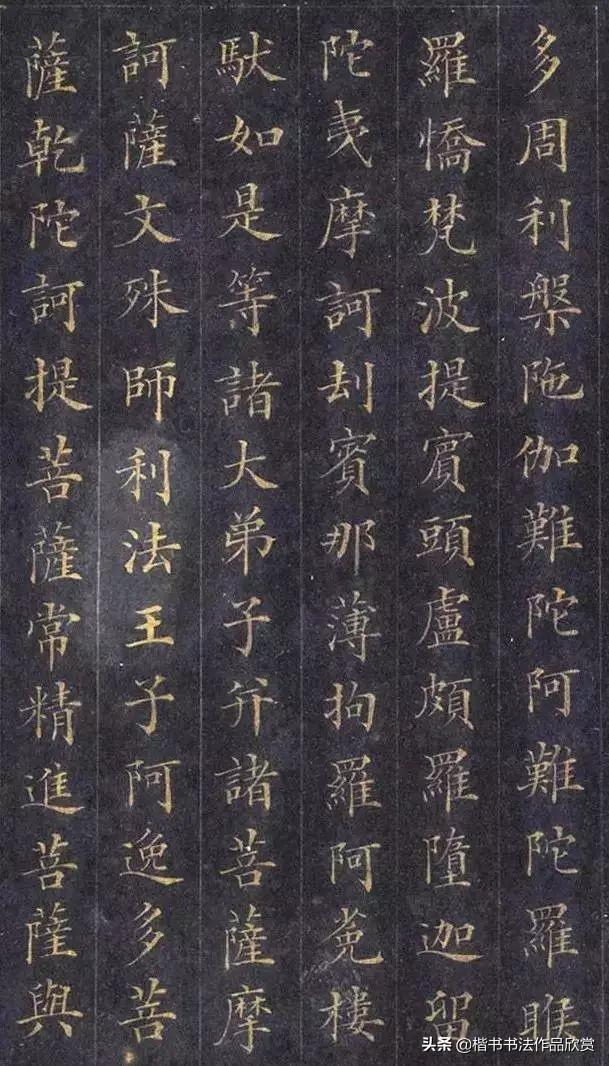 多周利槃陁伽難陀阿難陀羅睺
羅憍梵波提賓頭盧頗羅墮迦留
陀夷摩訶刧賓那薄拘羅阿㝹樓
馱如是等諸大弟子并諸菩薩摩
訶薩文殊師利法王子阿逸多菩
薩乾陀訶提菩薩常精進菩薩與
头条@楷书书法作品欣赏